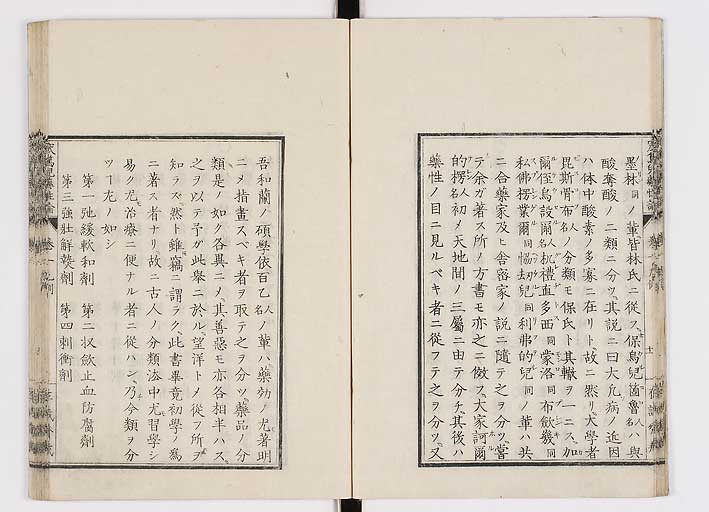 墨林同ノ輩皆林氏ニ從フ、保烏兒箇魯人名ハ與
酸奪酸ノ二類ニ分ツ、其說ニ曰大凡病ノ近因
ハ体中酸素ノ多寡ニ在リト、故ニ然リ、大學者
毘斯骨布人名ノ分類モ保氏ト其轍ヲ一ニス、加
爾俓烏設爾人名扤禮直多西同蒙洛同布歛幾同
私佛愣業爾同惕劫兒同利弗的兒同ノ輩ハ共
ニ合藥家及ヒ舍密家ノ說ニ隨テ之ヲ分ツ、嘗
テ余ガ著ス所ノ方書モ亦之ニ傚ス、大家訶爾
的愣人名初メ天地間ノ三屬ニ由テ分チ、其後ハ
藥性ノ目ニ見ルベキ者ニ從フテ之ヲ分ツ、又
吾和蘭ノ碩學依百乙人名ノ輩ハ藥効ノ尤著明
ニメ指畫スベキ者ヲ取テ之ヲ分ツ、藥品ノ分
類是ノ如ク各異ニメ、其善惡モ亦各相半ハス、
之ヲ以テ予ガ此舉ニ於ル望洋トメ從フ所ヲ
知ラズ、然ト雖竊ニ謂ラク、此書畢竟初學ノ爲
ニ著ス者ナリ、故ニ古人ノ分類法中尤習學シ
易ク尤治療ニ便ナル者ニ從ハン、乃今類ヲ分
ツヿ左ノ如シ
第一弛緩軟和劑　第二收歛止血防腐劑
第三強壯解熱劑　第四刺衝劑